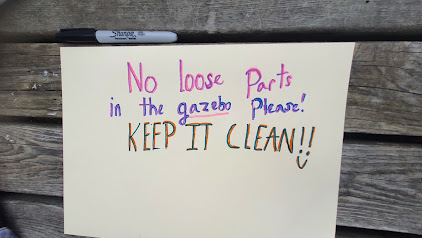 Sharpie
No loose Parts
in the gazebo Please!
KEEP IT CLEAN!!